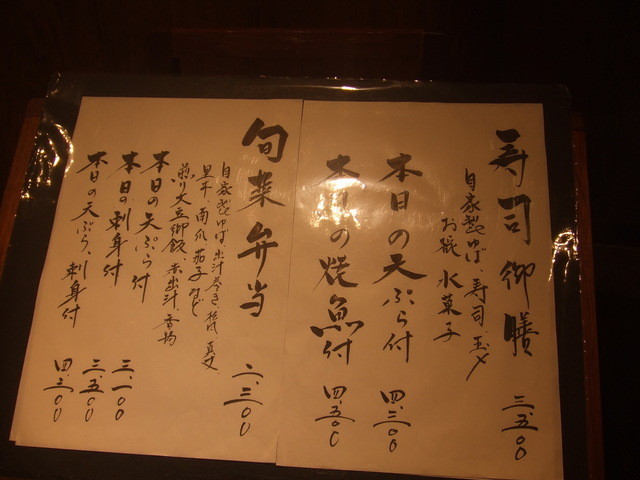 寿司御膳 三、五〇〇
自家製ゆば、寿司、玉〆
お椀 水菓子
本日の天ぷら付 四、三〇〇
本日の焼魚付 四、五〇〇
旬菜弁当 二、三〇〇
自家製ゆば、出汁巻き、
里芋、南瓜、茄子など
煎り大豆御飯、赤出汁、香物
本日の天ぷら付 三、一〇〇
本日の刺身付 三、五〇〇
本日の天ぷら、刺身付 四、三〇〇